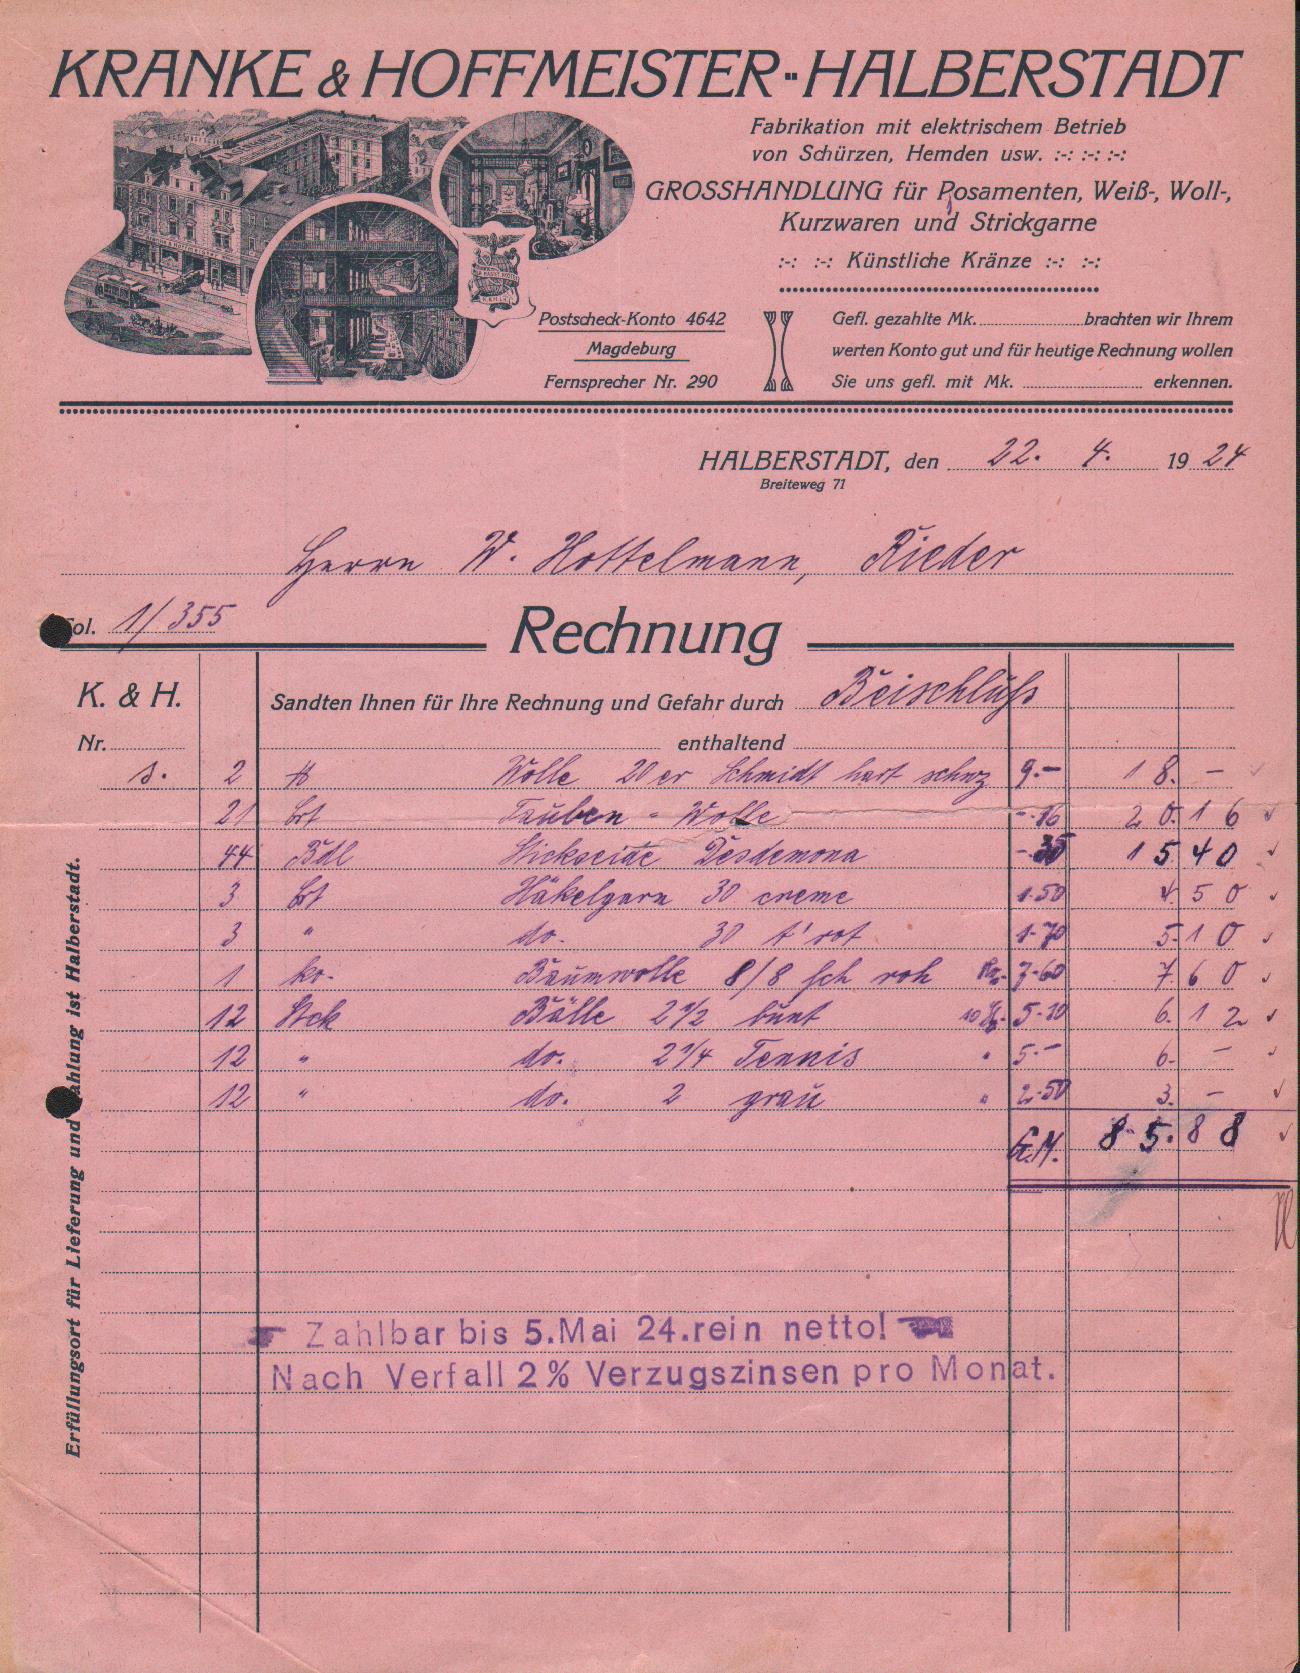 KRANKE & HOFFMEISTER·HALBERSTADT
Fabrikation mit elektrischem Betrieb
von Schürzen, Hemden usw. :-: :-: :-:
GROSSHANDLUNG für Posamenten, Weiß-, Woll-,
Kurzwaren und Strickgarne
:-: :-: Künstliche Kränze :-: :-:
Postscheck-Konto 4642
Magdeburg
Fernsprecher Nr. 290
Gefl. gezahlte Mk. brachten wir Ihrem
werten Konto gut und für heutige Rechnung wollen
Sie uns gefl. mit Mk. erkennen.
HALBERSTADT, den 22. 4. 1924
Breiteweg 71
Herrn W. Hottelmann, Rieder
Fol. 1/355
Rechnung
K. & H.
Sandten Ihnen für Ihre Rechnung und Gefahr durch Beischluß
Nr. enthaltend
s. 2 Wolle 20er Schmidt hart schwz 9.- 18. -
21 Tauben-Wolle 20.16
44 Bdl Stickseide Desdemona -.35 15 40
3 Häkelgarn 30 creme 1.50 4. 50
3 " do. 30 t'rot 1.70 5. 10
1 ko. Baumwolle 8/8 fch roh 7.60 7. 60
12 Stck Bälle 2 1/2 bunt 5.10 6. 12
12 " do. 2 1/4 Tennis " 5.- 6. -
12 " do. 2 grau " 2.50 3. -
G.M. 85.88
Zahlbar bis 5.Mai 24.rein netto!
Nach Verfall 2% Verzugszinsen pro Monat.
Erfüllungsort für Lieferung und Zahlung ist Halberstadt.